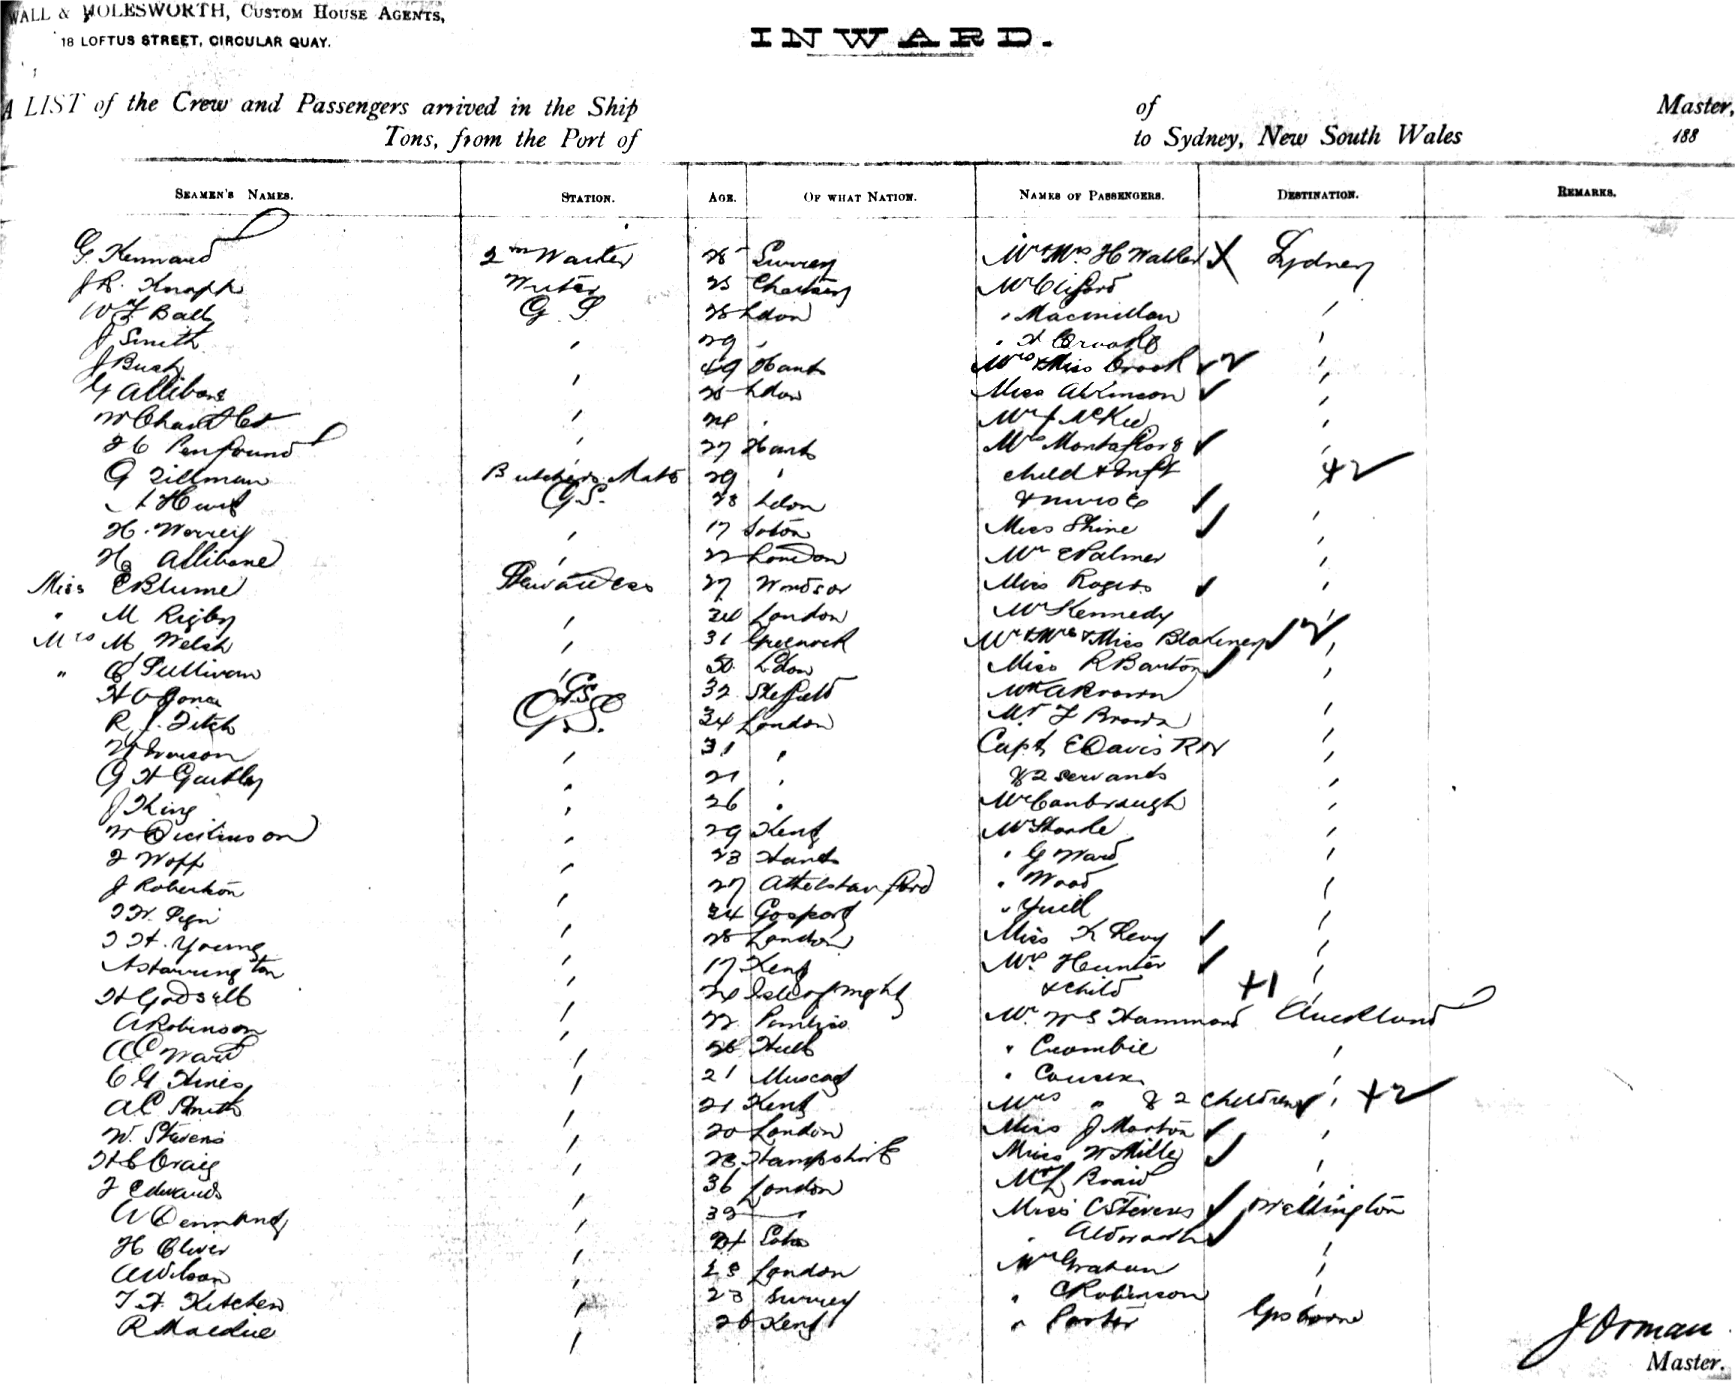 WALL & MOLESWORTH, CUSTOM HOUSE AGENTS,
18 LOFTUS STREET, CIRCULAR QUAY.
INWARD.
A LIST of the Crew and Passengers arrived in the Ship of Master,
Tons, from the Port of to Sydney, New South Wales 188
SEAMEN'S NAMES. STATION. AGE. OF WHAT NATION. NAMES OF PASSENGERS. DESTINATION. REMARKS.
G Kennard 2nd Waiter 25 Surrey Mr & Mrs H Walker Sydney
J R. Knapp Writer 25 Chertsey Mr Clifford
W F Ball G. S. 25 Ldon " Macmillan
J Smith 29 "
J Bush 49 Hants Mrs & Miss Crook
G Allibone 25 Ldon Miss Atkinson
W Chandler 24 " Mr J McKee
J C Penfound 27 Hants Mrs Montefiore
G Tillman Butchers Mate 29 " child & Inft
Hurst G.S. 23 Ldon & nurse
H. Worrey 17 Soton Miss Shine
H Allibone 22 London Mr E Palmer
Miss E Blume Stewardess 27 Windsor Miss Rogers
" M Rigby London Mr Kennedy
Mrs M Welsh 31 Greenock Mr & Mrs & Miss Blakeney
" O'Sullivan 50 Ldon Miss R Barton
G.S. 32 Sheffield Mr A Brown
R J. Fitch G.S. 34 London Mr F Brown
31 " Capt E Davis RN
G H Gartley 21 " & 2 servants
J King 26 "
W Dickinson 29 Kent
23 Hants " G Ward
J Robertson 27 Athelstanford " Wood
24 Gosport " Yuill
T H. Young 25 London Miss K Levy
17 Kent Mrs Hunter
H Godsell 24 Isle of Wight & child +1
A Robinson 22 Pimlico Mr W S Hammond Auckland
A C Ward Hull " Crombie
C G Hines 21 Muscat " Cousen
A C Smith 21 Kent Mrs " & 2 children +2
W. Stevens 20 London Miss J Morton
H C Craig 23 Hampshire Miss W Mills
J Edwards 36 London Braid
32 " Miss C Stevens Wellington
H Oliver Aldworth
A Wilson 23 London Mr Graham
T H. Kitchen 23 Surrey " C Robinson
R Mardue 26 Kent " Porter Gisborne
J Orman
Master.